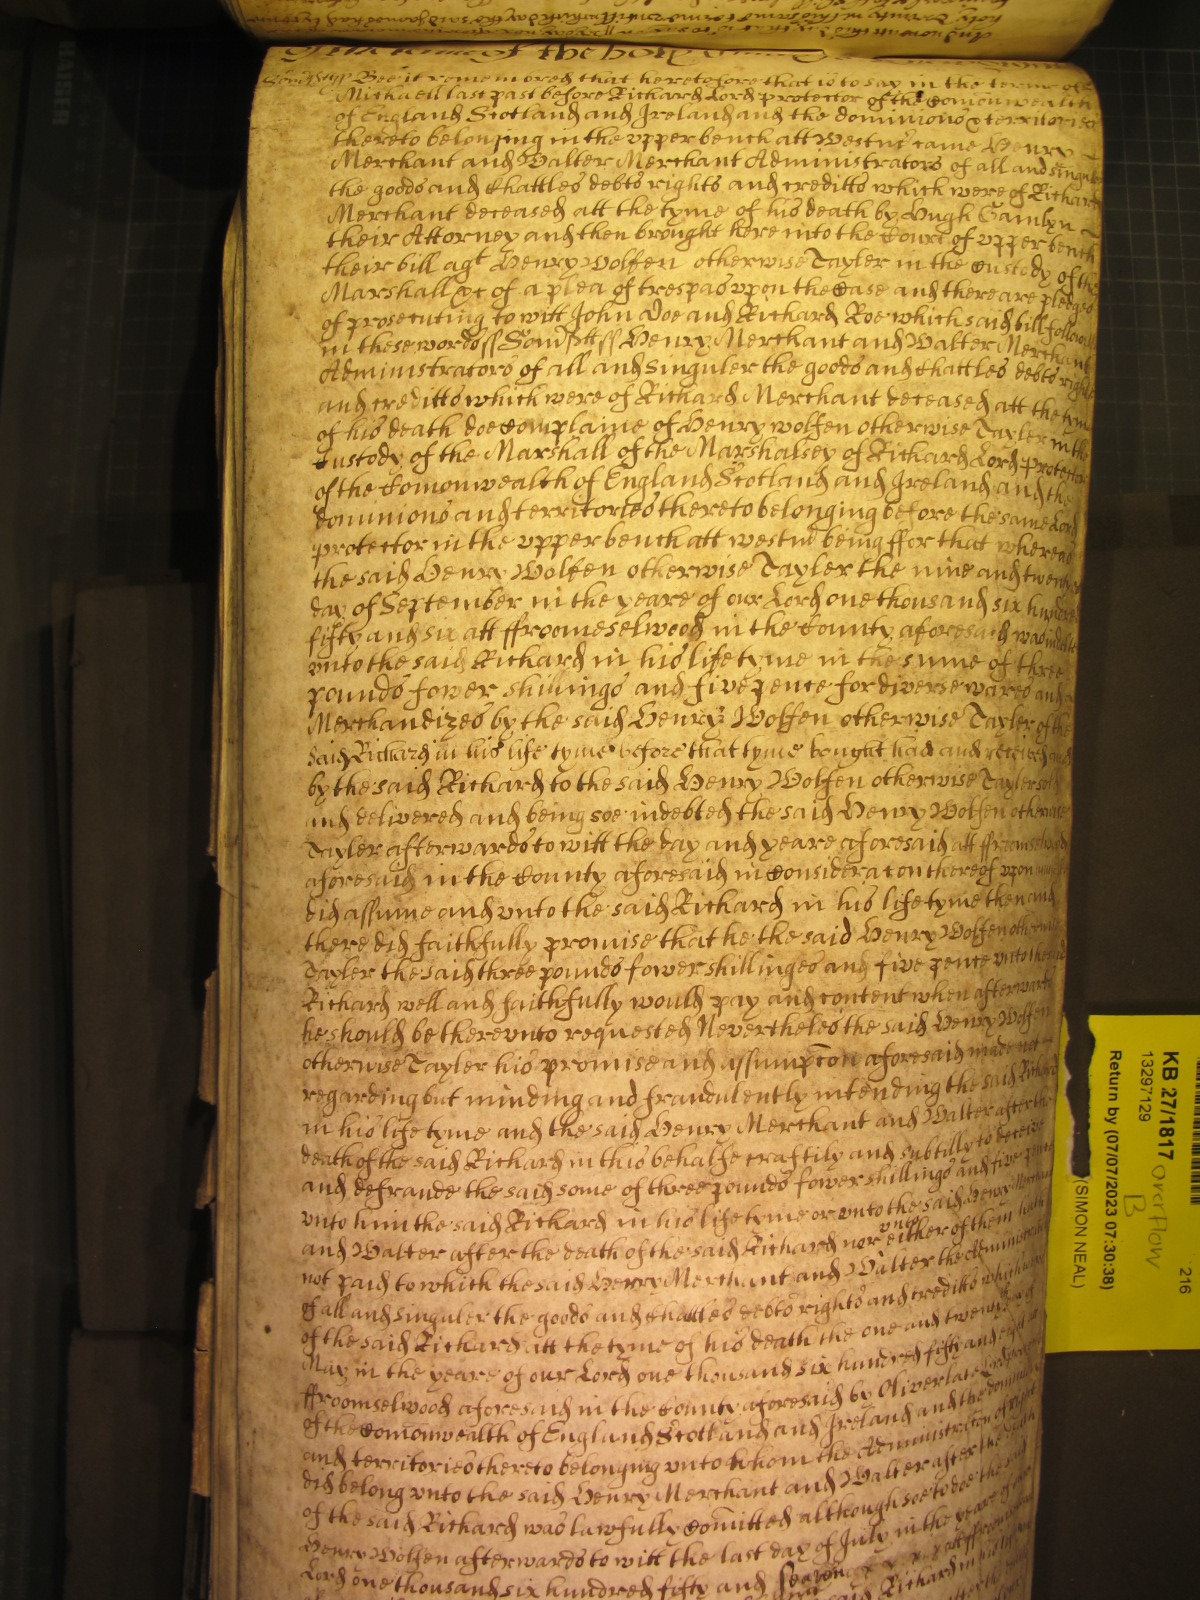 of the holy
Bee it remembred that heretofore that is to say in the terme of St
Michaell last past before Richard Lord protector of the Comonwealth
of England Scotland and Ireland and the dominions & territories
thereto belonging in the vpper bench att Westmr came Henry
Merchant and Walter Merchant Administrators of all and singuler
the goods and Chattles debts rights and creditts which were of Richard
Merchant deceased att the tyme of his death by Hugh Gamlyn
their Attorney and then brought here into the Court of vpper bench
their bill agt Henry Wolfen otherwise Tayler in the Custody of the
Marshall &c of a plea of trespas vpon the Case and there are pledges
of prosecuting to witt John Doe and Richard Roe which said bill followes
in these words ss Somstt ss Henry Merchant and Walter Merchant
Administrators of all and Singuler the goods and Chattles debts rights
and creditts which were of Richard Merchant deceased att the tyme
of his death doe Complaine of Henry wolfen otherwise Tayler in the
Custody of the Marshall of the Marshalsey of Richard Lord protector
of the Comonwealth of England Scotland and Ireland and the
dominions and territories thereto belonging before the same Lord
protector in the vpper bench att westmr being ffor that whereas
the said Henry Wolfen otherwise Tayler the nine and twenty
day of September in the yeare of our Lord one thousand six hundred
fifty and six att ffroomeselwood in the County aforesaid was indebted
vnto the said Richard in his life tyme in the sume of three
pounds fower shillings and five pence for diverse wares and
Merchandizes by the said Henry Wolfen otherwise Tayler of the
said Richard in his life tyme before that tyme bought had and received and
by the said Richard to the said Henry Wolfen otherwise Tayler sold
and delivered and being soe indebted the said Henry Wolfen otherwise
Tayler afterwards to witt the day and yeare aforesaid att ffroomselwood
aforesaid in the County aforesaid in Consideracon thereof vpon
did assume and vnto the said Richard in his life tyme then and
there did faithfully promise that he the said Henry Wolfen otherwise
Tayler the said three pounds fower shillinges and five pence vnto the said
Richard well and faithfully would pay and content when afterwards
he should be therevnto requested Nevertheles the said Henry Wolfen
otherwise Tayler his promise and assumpcon aforesaid made not
regarding but minding and fraudulently intending the said Richard
in his life tyme and the said Henry Merchant and Walter after the
death of the said Richard in this behalfe craftily and subtilly to deceive
and defraude the said some of three pounds fower shillings and five pence
vnto him the said Richard in his life tyme or vnto the said Henry Merchant
and Walter after the death of the said Richard nor vnto either of them hath
not paid to which the said Henry Merchant and Walter the Administracon
of all and singuler the goods and Chattles debts rights and creditts which were
of the said Richard att the tyme of his death the one and twentyeth day of
May in the yeare of our Lord one thousand six hundred fifty and eight att
ffroomselwood aforesaid in the County aforesaid by Oliver late Lord protector
of the Comonwealth of England Scotland and Ireland and the dominions
and territories thereto belonging vnto whom the Administracon of right
did belong vnto the said Henry Merchant and Walter after the death
of the said Richard was lawfully Comitted although soe to doe the said
Henry Wolfen afterwards to witt the last day of July in the yeare of our
Lord one thousand six hundred fifty and seaven att ffroomselwood
said Richard in his life
KB 27/1817
13297129
Return by (07/07/2023 07:30:38)
(SIMON NEAL)
216
overflow
B